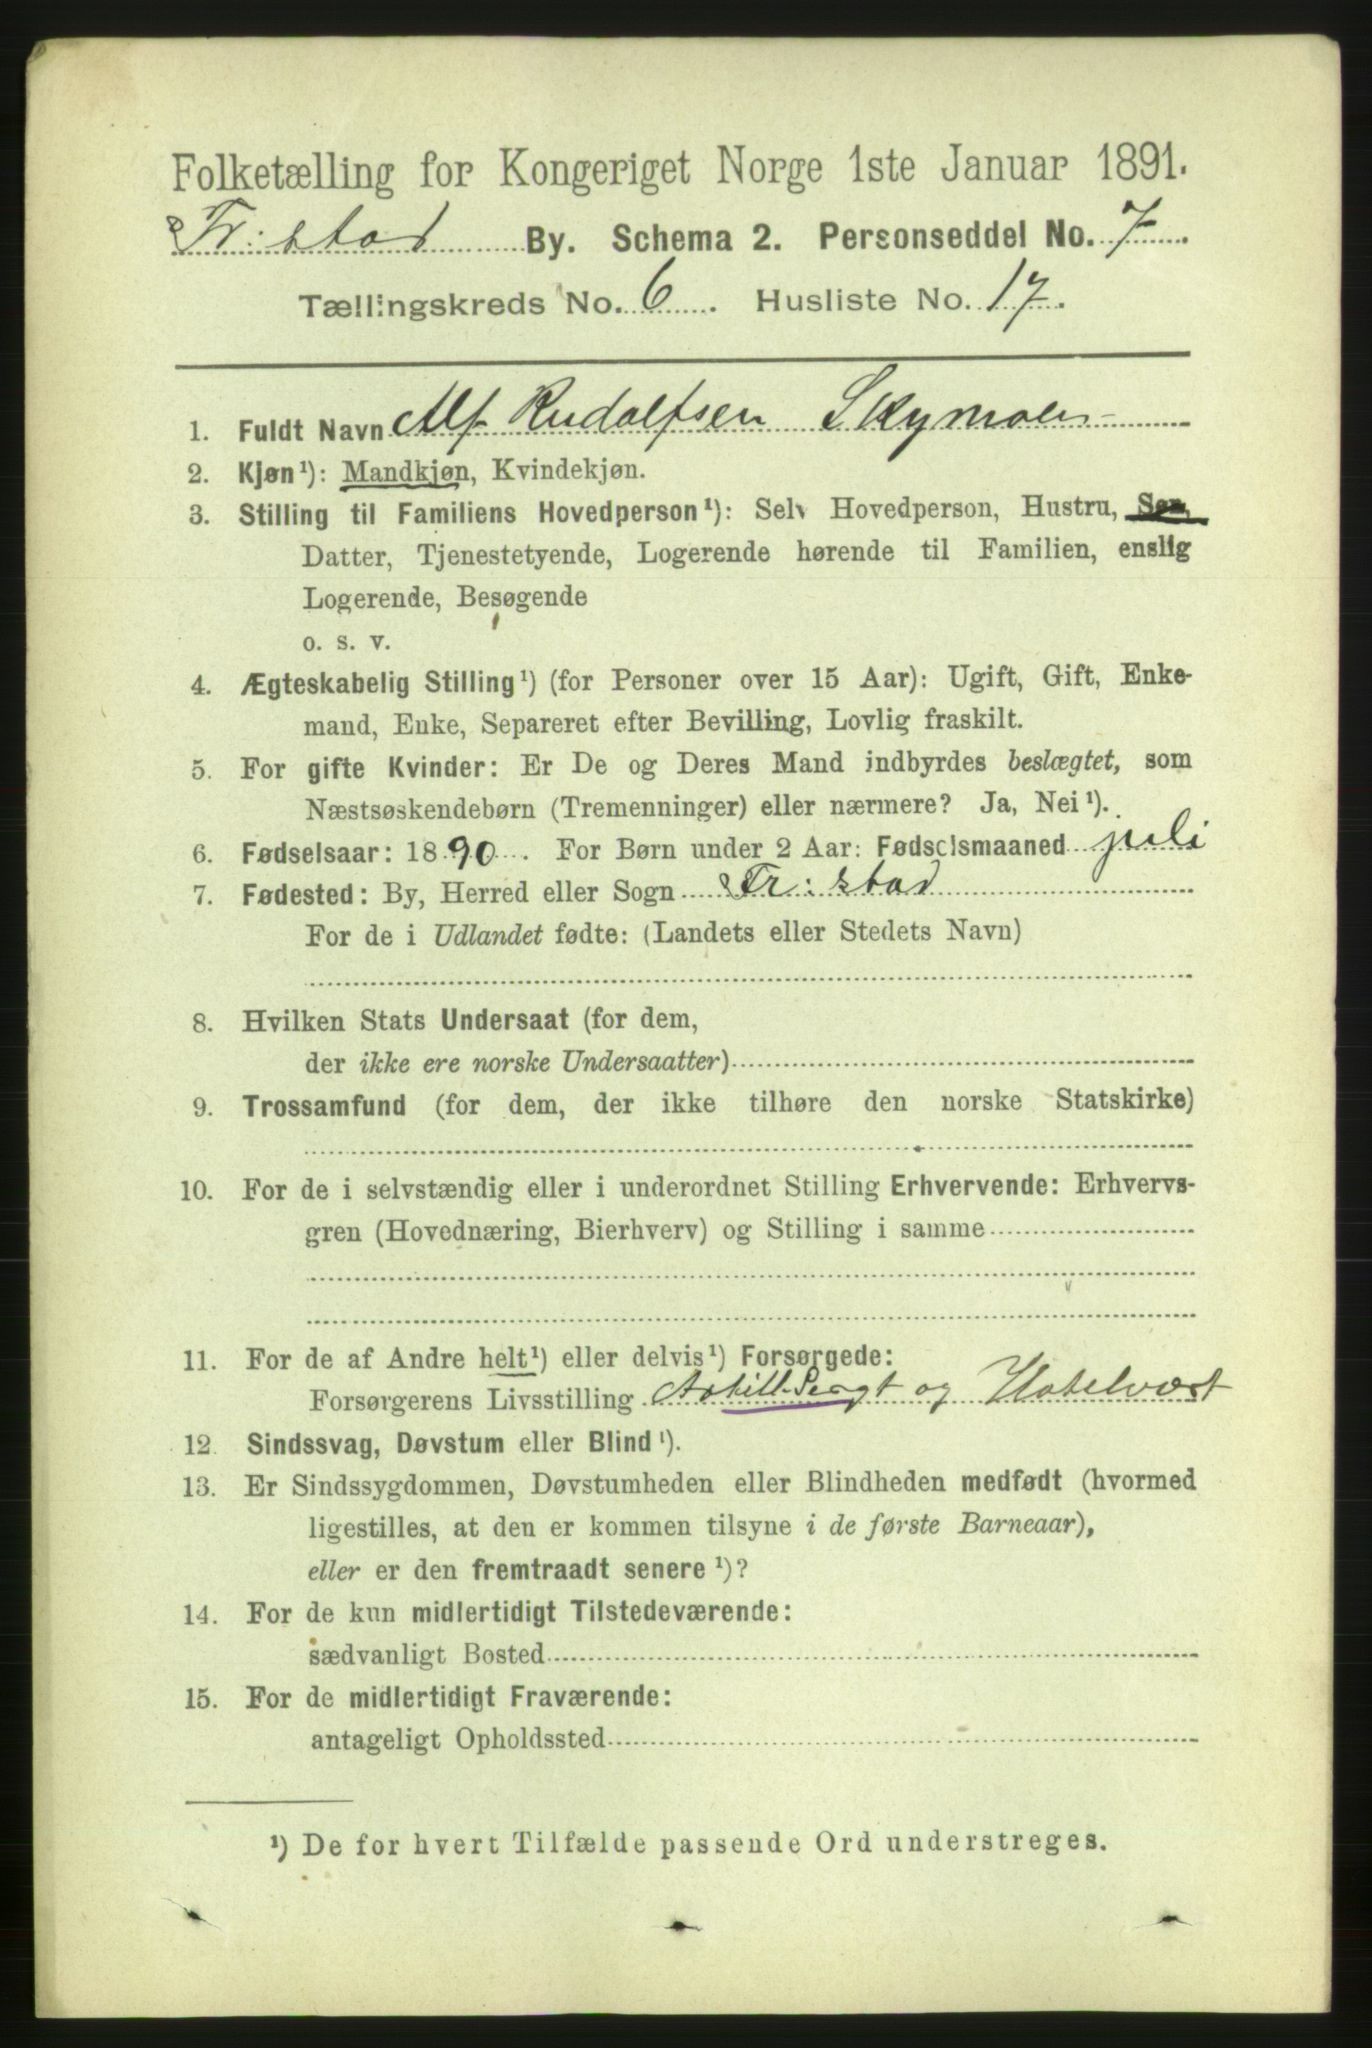 Folketælling for Kongeriget Norge 1ste Januar 1891.
Fr: stad By. Schema 2. Personseddel No. 7.
Tællingskreds No. 6. Husliste No. 17.
1. Fuldt Navn Alf Rudolfsen
2. Kjøn¹): Mandkjøn, Kvindekjøn.
3. Stilling til Familiens Hovedperson¹): Selv Hovedperson, Hustru, Søn,
Datter, Tjenestetyende, Logerende hørende til Familien, enslig
Logerende, Besøgende
o. s. v.
4. Ægteskabelig Stilling¹) (for Personer over 15 Aar): Ugift, Gift, Enke-
mand, Enke, Separeret efter Bevilling, Lovlig fraskilt.
5. For gifte Kvinder: Er De og Deres Mand indbyrdes beslægtet, som
Næstsøskendebørn (Tremenninger) eller nærmere? Ja, Nei¹).
6. Fødselsaar: 1890. For Børn under 2 Aar: Fødselsmaaned juli
7. Fødested: By, Herred eller Sogn Fr: stad
For de i Udlandet fødte: (Landets eller Stedets Navn)
8. Hvilken Stats Undersaat (for dem,
der ikke ere norske Undersaatter)
9. Trossamfund (for dem, der ikke tilhøre den norske Statskirke)
10. For de i selvstændig eller i underordnet Stilling Erhvervende: Erhvervs-
gren (Hovednæring, Bierhverv) og Stilling i samme
11. For de af Andre helt¹) eller delvis¹) Forsørgede:
Forsørgerens Livsstilling Artill. Sergt og Hotelvært
12. Sindssvag, Døvstum eller Blind¹).
13. Er Sindssygdommen, Døvstumheden eller Blindheden medfødt (hvormed
ligestilles, at den er kommen tilsyne i de første Barneaar),
eller er den fremtraadt senere¹)?
14. For de kun midlertidigt Tilstedeværende:
sædvanligt Bosted
15. For de midlertidigt Fraværende:
antageligt Opholdssted
¹) De for hvert Tilfælde passende Ord understreges.